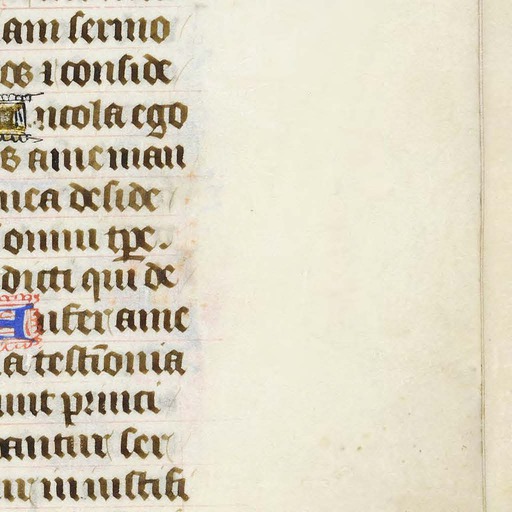 am sermo
os ⁊ conside
Incola ego
s a me man
mea deside
omni tpe.
dicti qui de
Aufer a me
a testīonia
unt princi
bantur ser
ur in iustifi